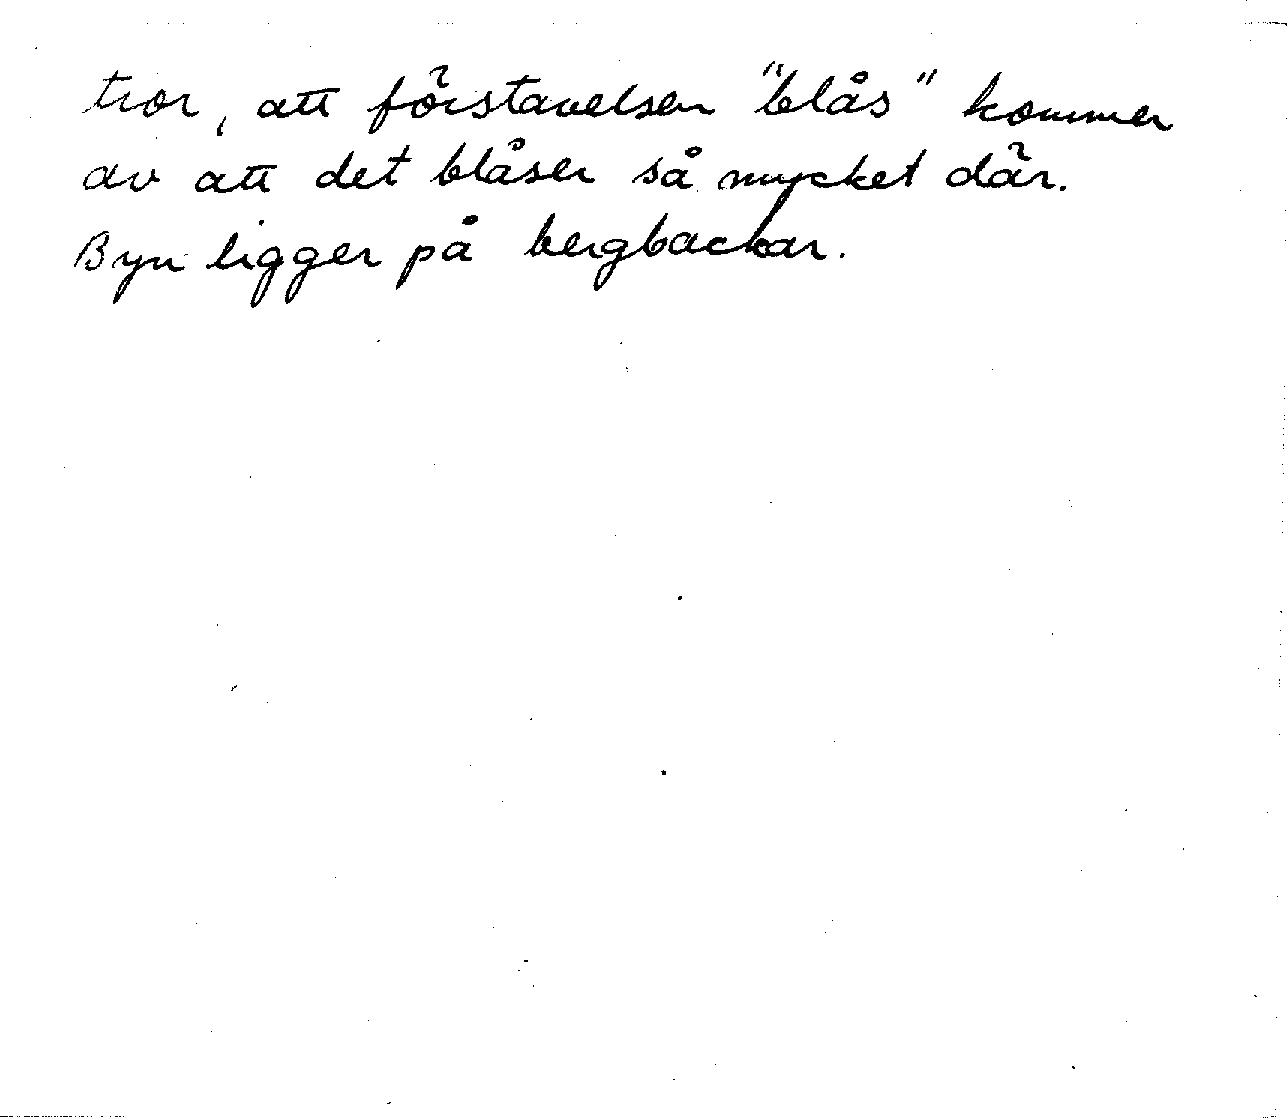 tror, att förstavelsen "blås" kommer
av att det blåser så mycket där.
Byn ligger på bergbackar.